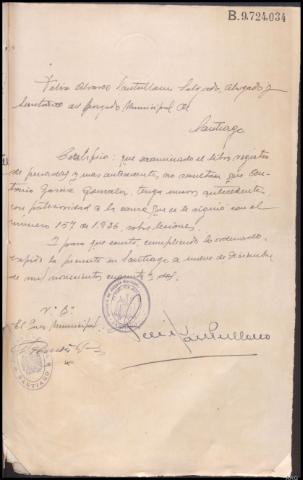 B.9.724.034
Felix Alvarez Santullano Salgado, Abogado y
Secretario del Juzgado Municipal de
Santiago
Certifico: que examinado el libro registro
de penados y sus antecedentes, no resultan que An-
tonio García González, tenga nuevos antecedentes
con posterioridad a la causa que se le siguió con el
número 157 de 1936, sobre lesiones.
I para que conste, cumpliendo lo ordenado,
expido la presente en Santiago a nueve de
de mil novecientos cuarenta y dos
Vº Bº
El Juez Municipal
Felix Santullano
SANTIAGO